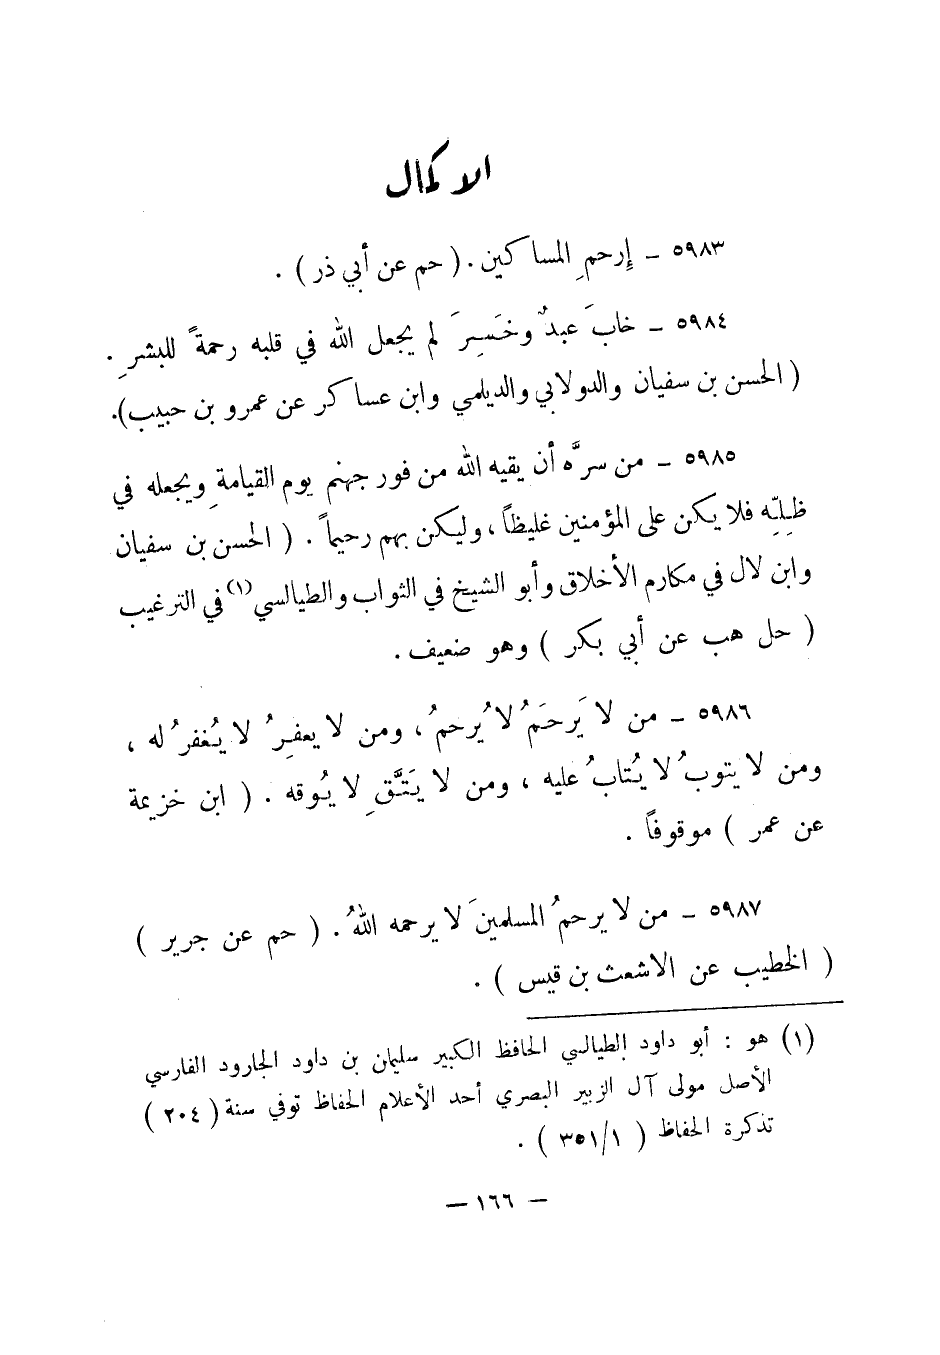 الاكمال
٥٩٨٣ ـ إرحمِ المساكين . ( حم عن أبي ذر ) .
٥٩٨٤ ـ خابَ عبدٌ وخَسِرَ لم يجعل الله في قلبه رحمةً للبشرِ .
( الحسن بن سفيان والدولابي والديلمي وابن عساكر عن عمرو بن حبيب).
٥٩٨٥ ـ من سرَّه أن يقيه الله من فور جهنم يوم القيامةِ ويجعله في
ظلِّه فلا يكن على المؤمنين غليظاً ، وليكن بهم رحيماً . ( الحسن بن سفيان
وابن لال في مكارم الأخلاق وأبو الشيخ في الثواب والطيالسي(١) في الترغيب
( حل هب عن أبي بكر ) وهو ضعيف .
٥٩٨٦ ـ من لا يَرحَمُ لا يُرحمُ ، ومن لا يعفِرُ لا يُغفرُ له ،
ومن لا يتوبُ لا يُتابُ عليه ، ومن لا يَتَّقِ لا يُوقه . ( ابن خزيمة
عن عمر ) موقوفاً .
٥٩٨٧ ـ من لا يرحمُ المسلمينَ لا يرحمه اللهُ . ( حم عن جرير )
( الخطيب عن الاشعث بن قيس ) .
(١) هو : أبو داود الطيالسي الحافظ الكبير سليمان بن داود الجارود الفارسي
الأصل مولى آل الزبير البصري أحد الأعلام الحفاظ توفي سنة ( ٢٠٤ )
تذكرة الحفاظ ( ٣٥١/١ ) .
— ١٦٦ —